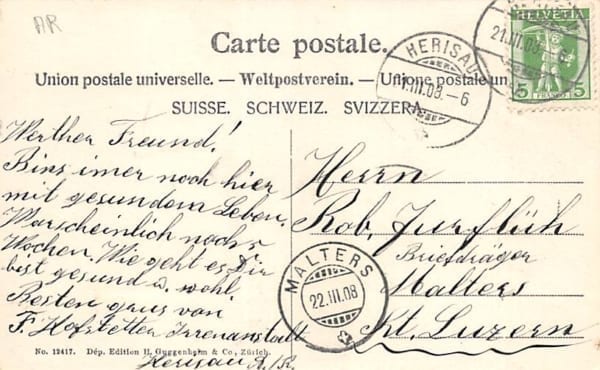 AR
Carte postale.
Union postale universelle. — Weltpostverein. — Unione postale un
SUISSE. SCHWEIZ. SVIZZERA.
HELVETIA
5 FRANCO 5
HERISAU
21.III.08.–6
HERISAU
21.III.08.–6
Werther Freund!
Bins imer noch hier
mit gesundem Leben.
Warscheinlich noch 5
Wochen. Wie geht es Dir
bist gesund u. wohl
Besten grus von
F. Hofstetter Irrenanstalt
Herisau A./R.
Herrn
Rob. Zurflüh
Briefträger
Malters
Kt. Luzern
MALTERS
22.III.08
No. 12417. Dép. Edition H. Guggenheim & Co., Zürich.